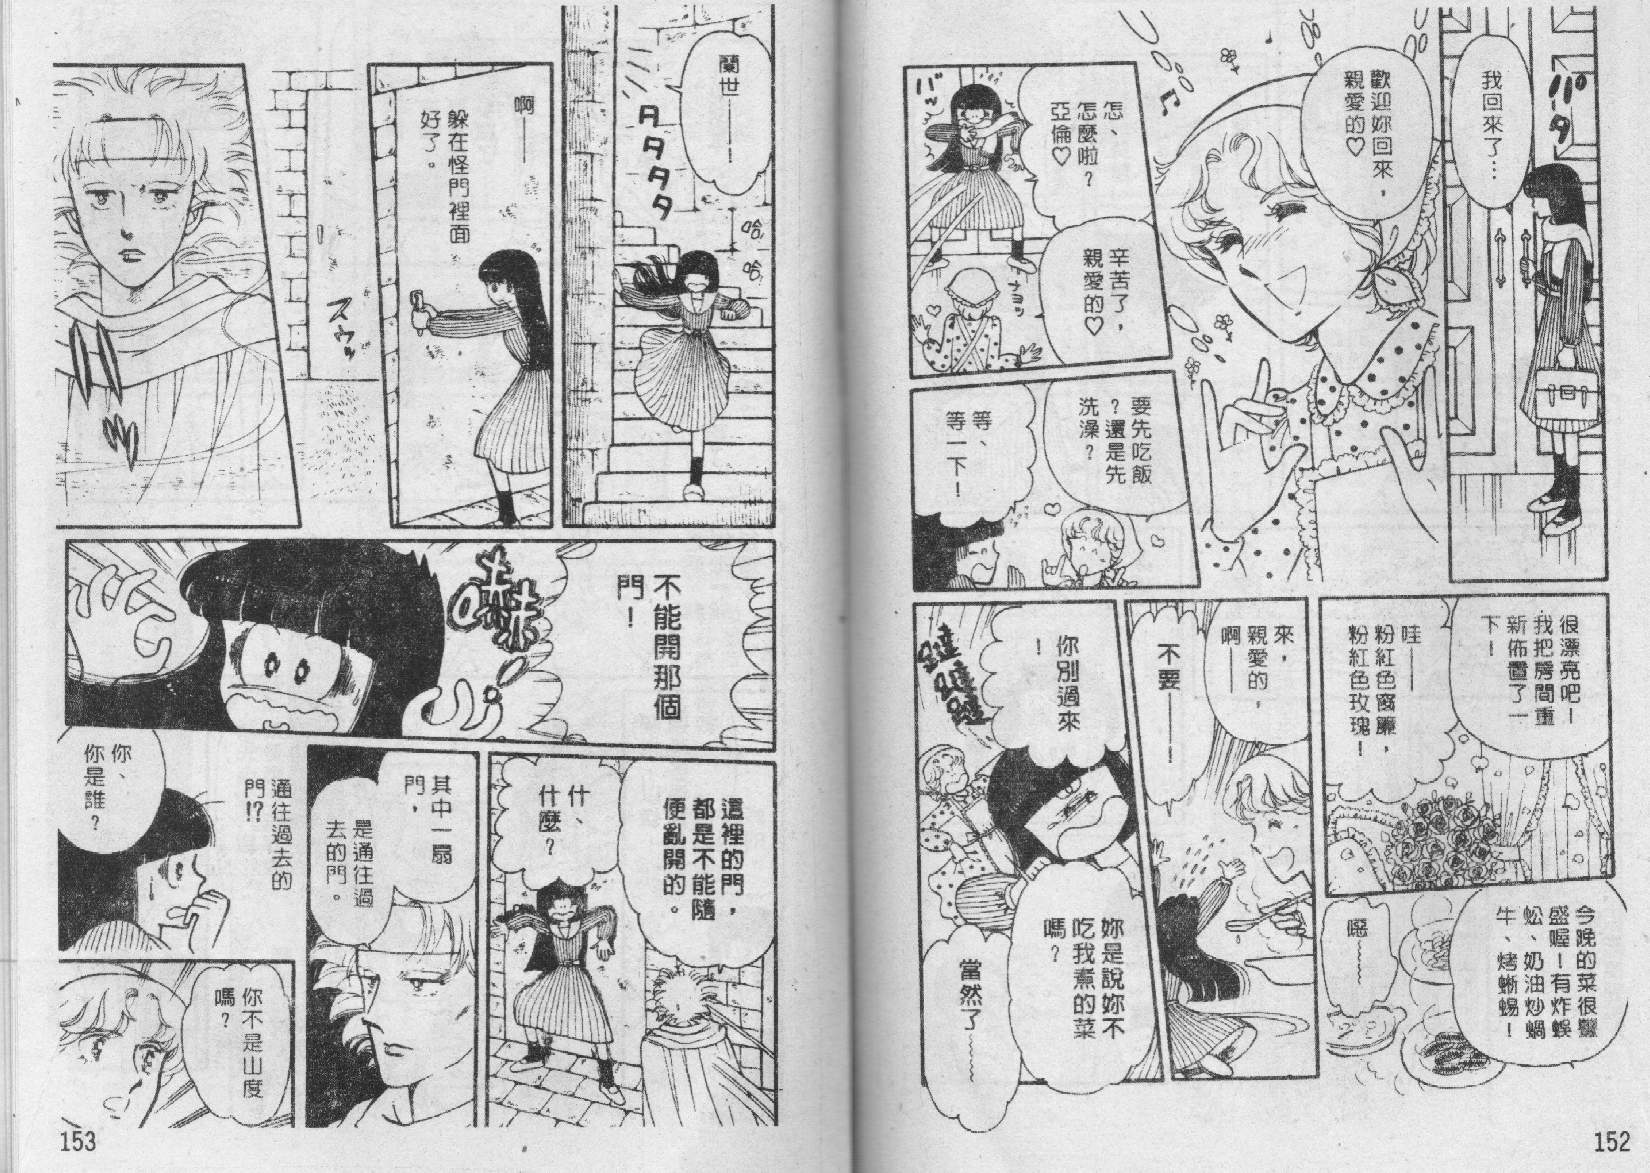 我回來了…
バータ
歡迎妳回來，
親愛的♡
バッ
怎、
怎麼啦？
亞倫♡
辛苦了，
親愛的♡
ナヨッ
要先吃飯
？還是先
洗澡？
等、
等一下！
很漂亮吧！
我把房間重
新佈置了一
下！
哇——
粉紅色窗簾，
粉紅色玫瑰！
今晚的菜很豐
盛喔！有炸蜈
蚣、奶油炒蝸
牛、烤蜥蜴！
噁〰
來，
親愛的，
啊——
不要——！
你別過來
！
躂躂躂躂
妳是說妳不
吃我煮的菜
嗎？
當然了〰
152
蘭世——！
タタタタ
哈
哈
啊——
躲在怪門裡面
好了。
スウッ
不能開那個
門！
這裡的門，
都是不能隨
便亂開的。
什、
什麼？
其中一扇
門，
是通往過
去的門。
通往過去的
門!?
你、
你是誰？
你不是山度
嗎？
153